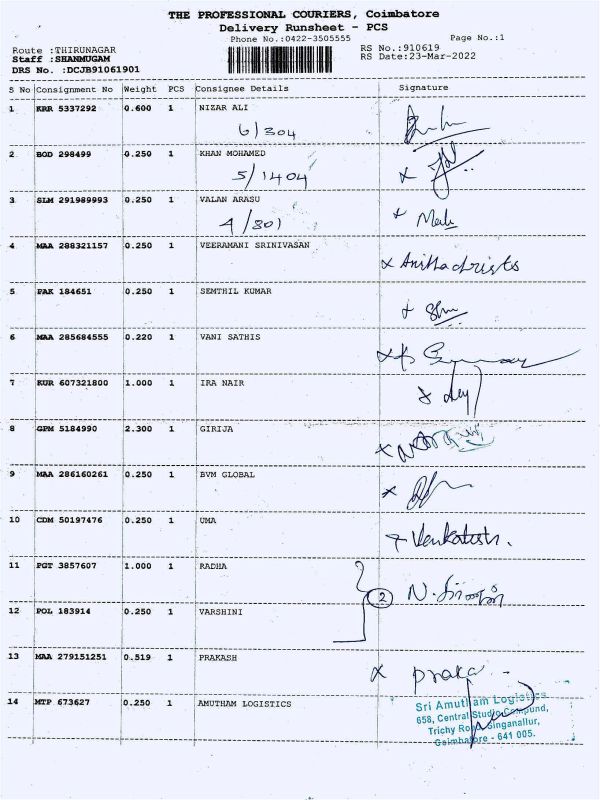 THE PROFESSIONAL COURIERS, Coimbatore
Delivery Runsheet - PCS
Phone No.:0422-3505555 Page No.:1
Route :THIRUNAGAR RS No.:910619
Staff :SHANMUGAM RS Date:23-Mar-2022
DRS No. :DCJB91061901
S No Consignment No Weight PCS Consignee Details Signature
1 KRR 5337292 0.600 1 NIZAR ALI
6/304
2 BOD 298499 0.250 1 KHAN MOHAMED
5/1404
3 SLM 291989993 0.250 1 VALAN ARASU
4/301
4 MAA 288321157 0.250 1 VEERAMANI SRINIVASAN
5 PAK 184651 0.250 1 SEMTHIL KUMAR
6 MAA 285684555 0.220 1 VANI SATHIS
7 KUR 607321800 1.000 1 IRA NAIR
8 GPM 5184990 2.300 1 GIRIJA
9 MAA 286160261 0.250 1 BVM GLOBAL
10 CDM 50197476 0.250 1 UMA
Venkatesh.
11 PGT 3857607 1.000 1 RADHA
2 N.
12 POL 183914 0.250 1 VARSHINI
13 MAA 279151251 0.519 1 PRAKASH
praka
14 MTP 673627 0.250 1 AMUTHAM LOGISTICS
Sri Amutham Logistics
658, Central Studio Compound,
Trichy Road, Singanallur,
Coimbatore - 641 005.